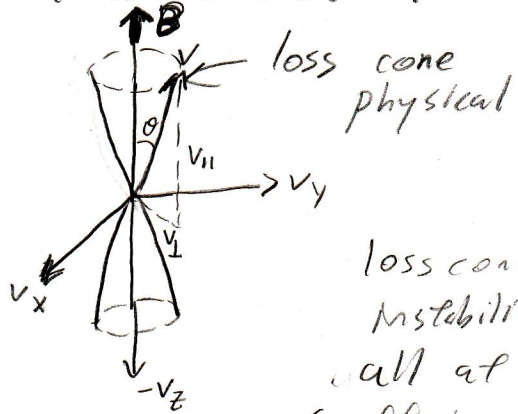 B
V
loss cone
physical
θ
V||
> Vy
V⊥
Vx
loss con
instabili
all at
-Vz